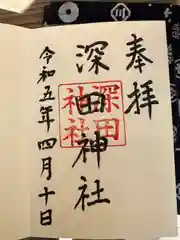 奉拝
深田神社
深田
神社
令和五年四月十日